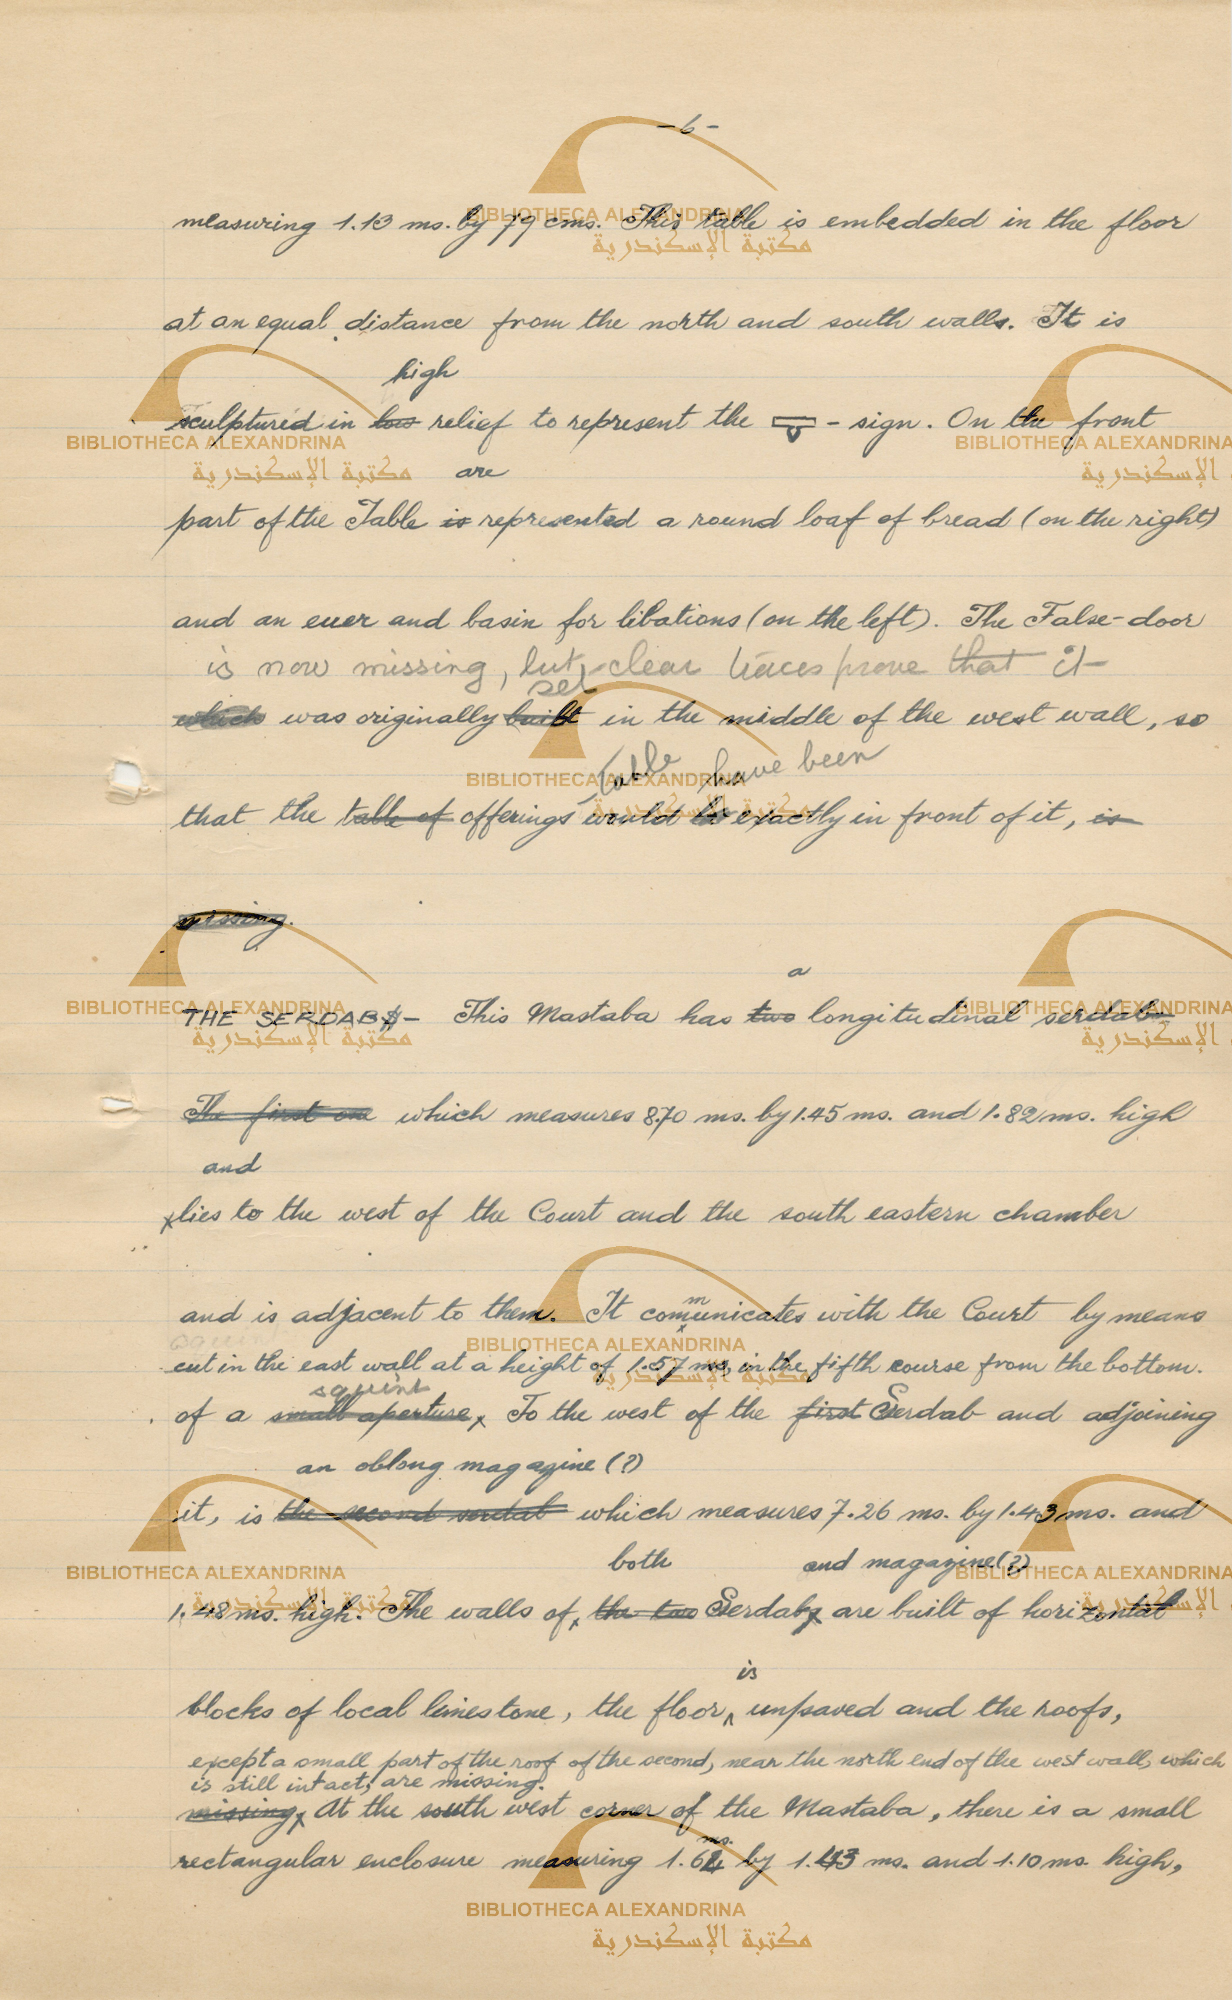 -6-
measuring 1.13 ms. by 79 cms. This table is embedded in the floor
at an equal distance from the north and south walls. It is
high
sculptured in low relief to represent the - sign. On the front
are
part of the Table is represented a round loaf of bread (on the right)
and an ewer and basin for libations (on the left). The False-door
is now missing, but clear traces prove that it
set
which was originally built in the middle of the west wall, so
table have been
that the table of offerings would be exactly in front of it, is
missing.
a
THE SERDABS - This Mastaba has two longitudinal serdabs
The first one which measures 8.70 ms. by 1.45 ms. and 1.82 ms. high
and
lies to the west of the Court and the south eastern chamber
m
and is adjacent to them. It comunicates with the Court by means
cut in the east wall at a height of 1.57 ms, in the fifth course from the bottom.
squint
of a small aperture, To the west of the first Serdab and adjoining
an oblong magazine (?)
it, is the second serdab which measures 7.26 ms. by 1.43 ms. and
both and magazine (?)
1.48 ms. high. The walls of the two Serdabs are built of horizontal
is
blocks of local limestone, the floor unpaved and the roofs,
except a small part of the roof of the second, near the north end of the west wall, which
is still intact, are missing.
missing, At the south west corner of the Mastaba, there is a small
ms.
rectangular enclosure measuring 1.64 by 1.43 ms. and 1.10 ms. high,
BIBLIOTHECA ALEXANDRINA
مكتبة الإسكندرية